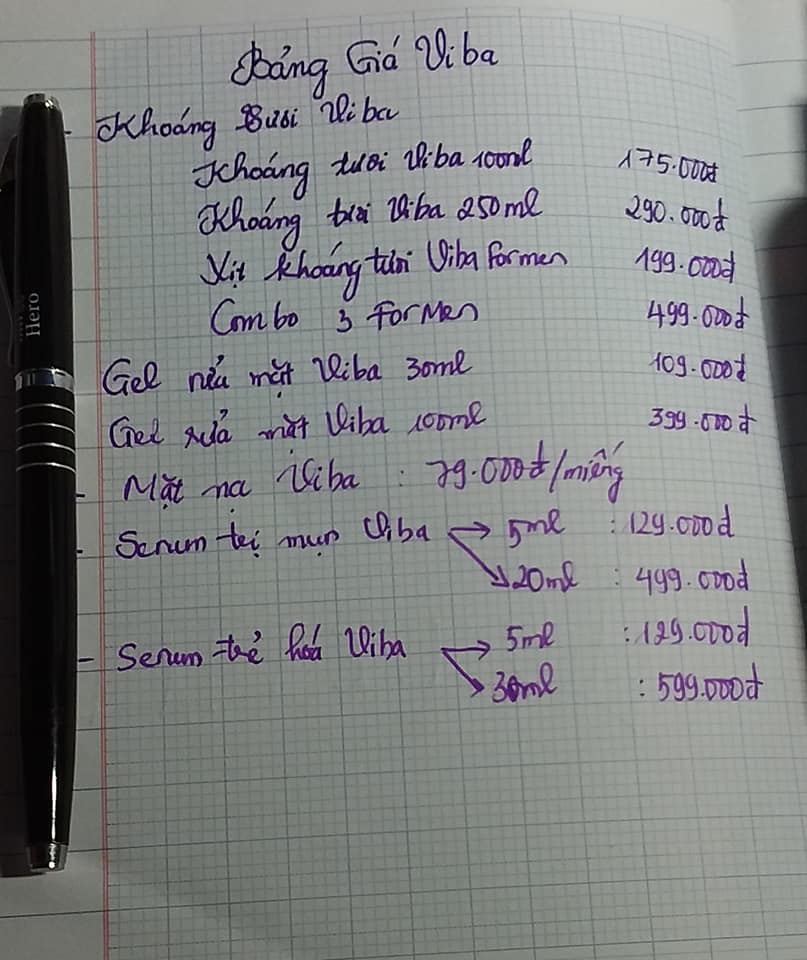 Bảng Giá Viba
- Khoáng tươi Viba
Khoáng tươi Viba 100ml 175.000đ
Khoáng tươi Viba 250ml 290.000đ
Xịt khoáng tươi Viba formen 199.000đ
Combo 3 forMen 499.000đ
Gel rửa mặt Viba 30ml 109.000đ
Gel rửa mặt Viba 100ml 399.000đ
- Mặt nạ Viba : 79.000đ/miếng
- Serum trị mụn Viba → 5ml : 129.000đ
↘ 20ml : 499.000đ
- Serum trẻ hoá Viba → 5ml : 129.000đ
↘ 30ml : 599.000đ
Hero